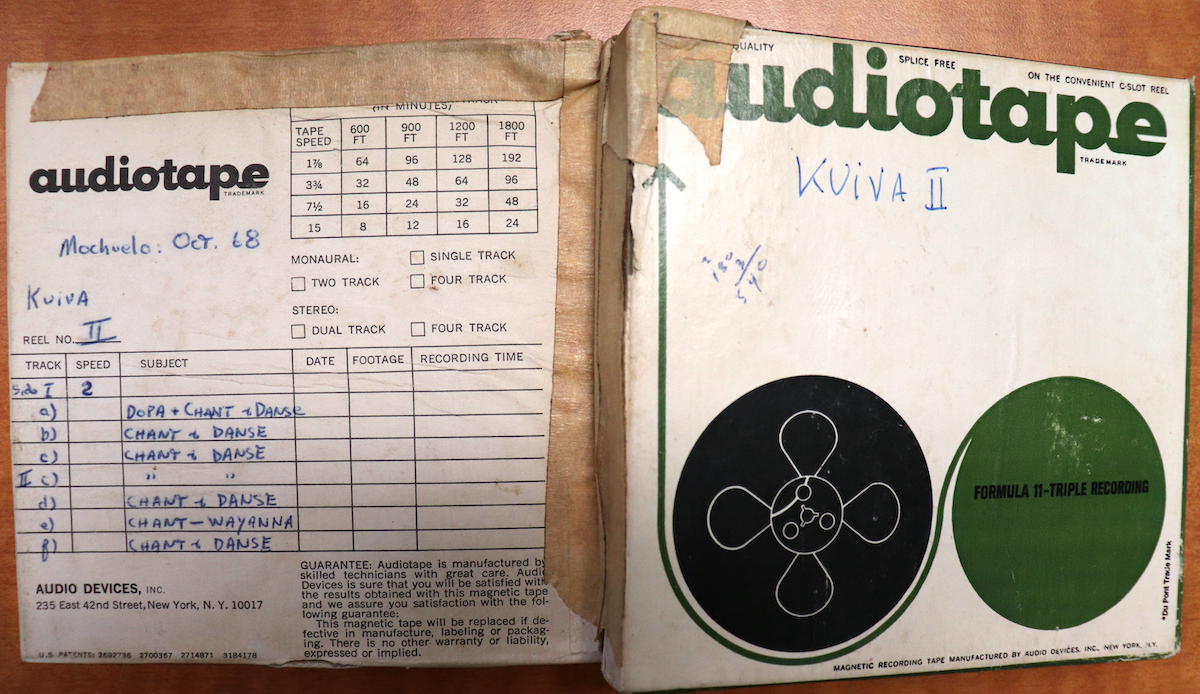 (IN MINUTES)
TAPE SPEED 600 FT 900 FT 1200 FT 1800 FT
1⅞ 64 96 128 192
3¾ 32 48 64 96
7½ 16 24 32 48
15 8 12 16 24
audiotape
TRADEMARK
Mochuelo: Oct. 68
MONAURAL: SINGLE TRACK
TWO TRACK FOUR TRACK
KUIVA
STEREO:
REEL NO. II
DUAL TRACK FOUR TRACK
TRACK SPEED SUBJECT DATE FOOTAGE RECORDING TIME
Side I 2
a) DOPA + CHANT + DANSE
b) CHANT + DANSE
c) CHANT + DANSE
II c) " "
d) CHANT + DANSE
e) CHANT - WAYANNA
f) CHANT + DANSE
AUDIO DEVICES, INC.
235 East 42nd Street, New York, N. Y. 10017
U.S. PATENTS: 2692736 2700367 2714871 3184178
GUARANTEE: Audiotape is manufactured by
skilled technicians with great care. Audio
Devices is sure that you will be satisfied with
the results obtained with this magnetic tape
and we assure you satisfaction with the fol-
lowing guarantee:
This magnetic tape will be replaced if de-
fective in manufacture, labeling or packag-
ing. There is no other warranty or liability,
expressed or implied.
QUALITY SPLICE FREE ON THE CONVENIENT C-SLOT REEL
audiotape
TRADEMARK
KUIVA II
FORMULA 11-TRIPLE RECORDING
*Du Pont Trade Mark
MAGNETIC RECORDING TAPE MANUFACTURED BY AUDIO DEVICES, INC., NEW YORK, N.Y.